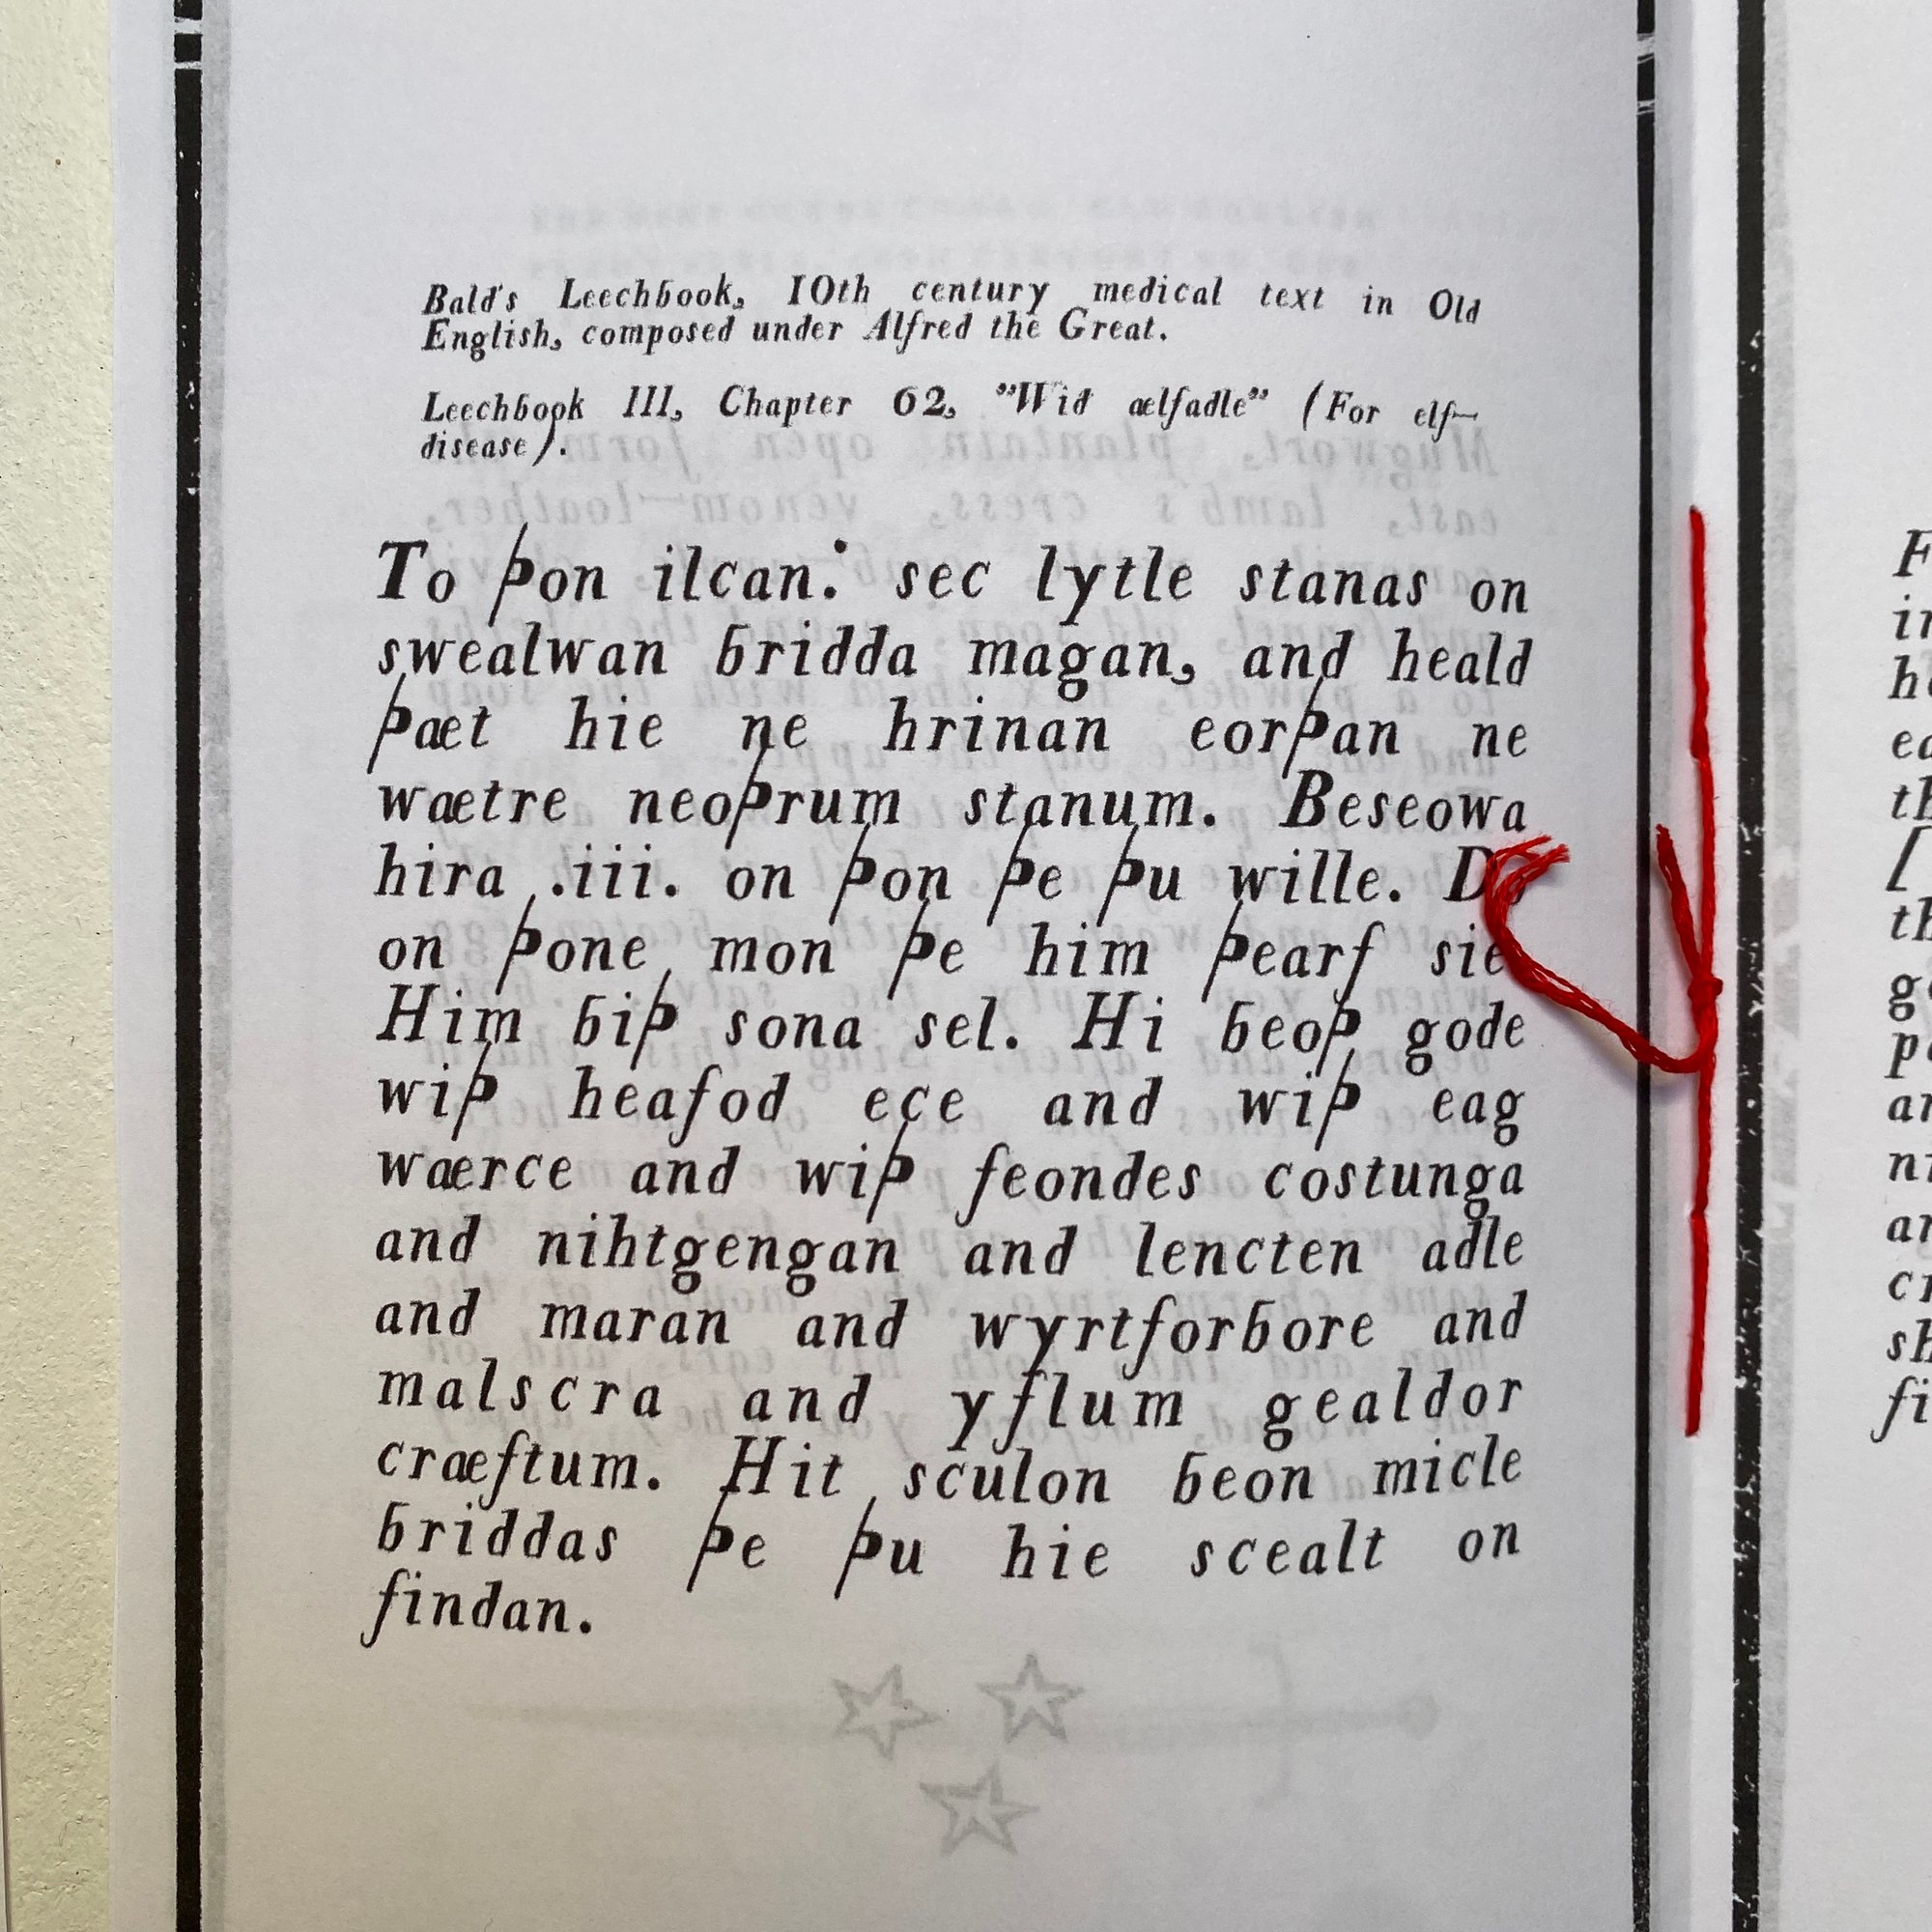 Bald's Leechbook, 10th century medical text in Old
English, composed under Alfred the Great.
Leechbook III, Chapter 62, "Wid ælfadle" (For elf-
disease).
To þon ilcan.· sec lytle stanas on
swealwan bridda magan, and heald
þæt hie ne hrinan eorþan ne
wætre neoþrum stanum. Beseowa
hira .iii. on þon þe þu wille.
on þone mon þe him þearf sie
Him biþ sona sel. Hi beoþ gode
wiþ heafod ece and wiþ eag
wærce and wiþ feondes costunga
and nihtgengan and lencten adle
and maran and wyrtforbore and
malscra and yflum gealdor
cræftum. Hit sculon beon micle
briddas þe þu hie scealt on
findan.